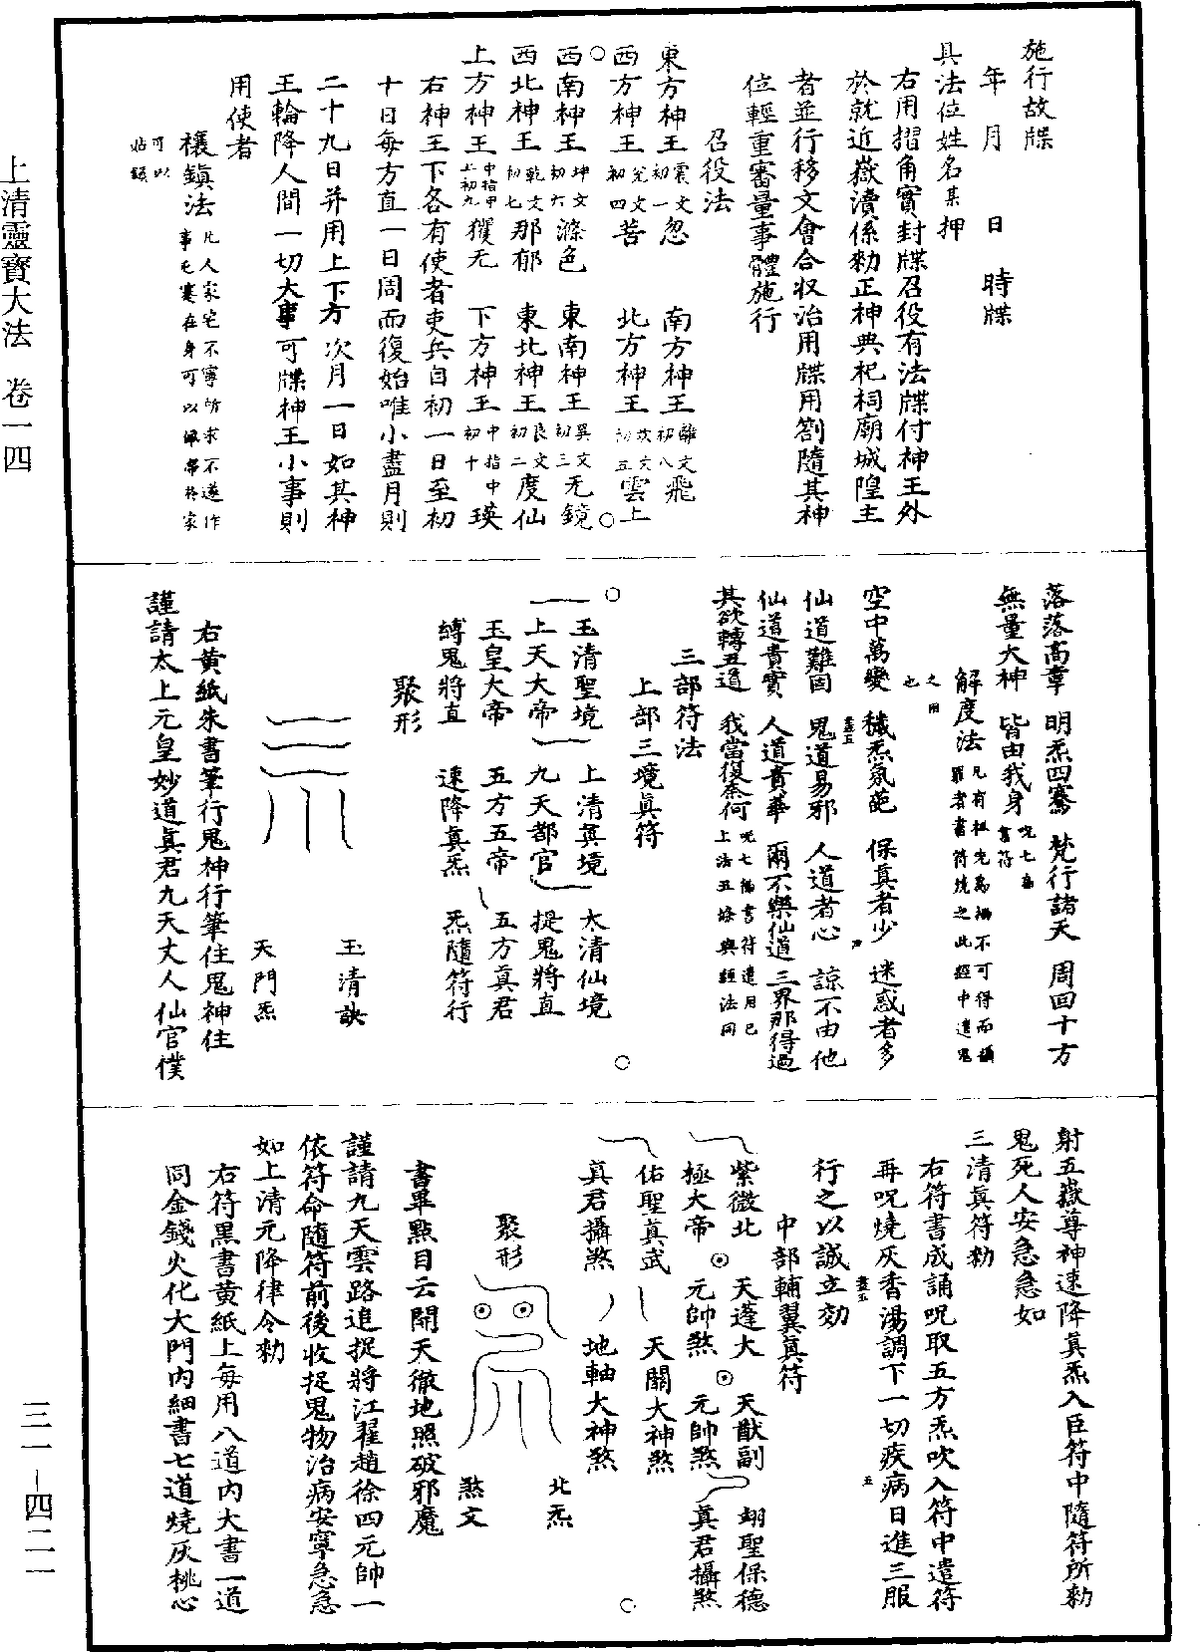 上清靈寶大法　卷一四
三一—四二一
施行故牒
年　月　日　時牒
具法位姓名某押
右用摺角實封牒召役有法牒付神王外
於就近嶽瀆係勑正神典祀祠廟城隍主
者並行移文會合收治用牒用劄隨其神
位輕重審量事體施行
召役法
東方神王震文初一忽　南方神王離文初八飛
西方神王兊文初四菩　北方神王坎文初五雲上
○西南神王坤文初六滌色　東南神王巽文初三无鏡○
西北神王乾文初七那郁　東北神王艮文初二度仙
上方神王中指中上初九玃无　下方神王中指中初十瑛
右神王下各有使者吏兵自初一日至初
十日每方直一日周而復始唯小盡月則
二十九日并用上下方次月一日如其神
王輪降人間一切大事可牒神王小事則
用使者
禳鎮法凡人家宅不寧所求不遂作事乇蹇在身可以佩帶於家
可以帖鎮
落落高章　明炁四騫　梵行諸天　周回十方
無量大神　皆由我身呪七遍書符
解度法凡有祖先爲禍不可得而攝罪者書符燒之此經中遣鬼
之用也
空中萬變　穢炁氛葩　保真者少　迷惑者多
仙道難固　鬼道易邪　人道者心　諒不由他
仙道貴實　人道貴華　爾不樂仙道　三界那得過
其欲轉五道　我當復柰何呪七徧書符遣用已上法五條與經法同
三部符法
上部三境真符
○玉清聖境　上清真境　太清仙境○
上天大帝　九天都官　捉鬼將直
玉皇大帝　五方五帝　五方真君
縛鬼將直　速降真炁　炁隨符行
聚形
玉清訣
天門炁
右黃紙朱書筆行鬼神行筆住鬼神住
謹請太上元皇妙道真君九天丈人仙官僕
射五嶽尊神速降真炁入臣符中隨符所勑
鬼死人安急急如
三清真符勑
右符書成誦呪取五方炁吹入符中遣符
再呪燒灰香湯調下一切疾病日進三服
行之以誠立効
中部輔翼真符
紫微北　天蓬大　天猷副　翊聖保德
極大帝　元帥煞　元帥煞　真君攝煞
佑聖真武　天關大神煞
真君攝煞　地軸大神煞○
聚形
北炁
煞文
書畢點目云開天徹地照破邪魔
謹請九天雲路追捉將江翟趙徐四元帥一
依符命隨符前後收捉鬼物治病安寧急急
如上清元降律令勑
右符黑書黃紙上每用八道內大書一道
同金錢火化大門內細書七道燒灰桃心